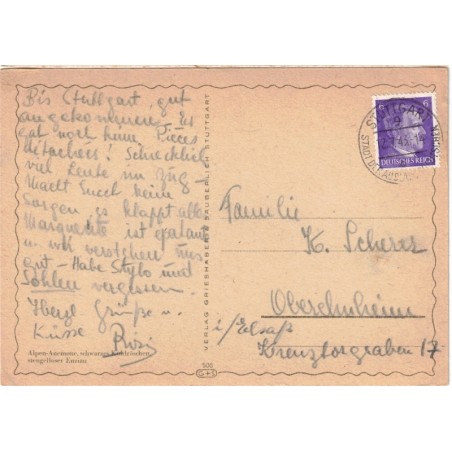 Bis Stuttgart gut
angekommen. Es
gab noch keine Pièces
détachées! Schrecklich
viel Leute im Zug –
Macht Euch keine
Sorgen es klappt alles
Marguerite ist
u. wir verstehen uns
gut – Habe Stylo und
Sohlen vergessen.
Herzl. Grüße u.
Küsse
Rösi
Alpen-Anemone, schwarzes Kohlröschen,
stengelloser Enzian.
VERLAG GRIESHABER & STÄUBER LICHT STUTTGART
508
G+S
STUTTGART
DEUTSCHES REICH
6
Familie
K. Scherer
Oberehnheim
i/Elsaß
Kreuztorgraben 17